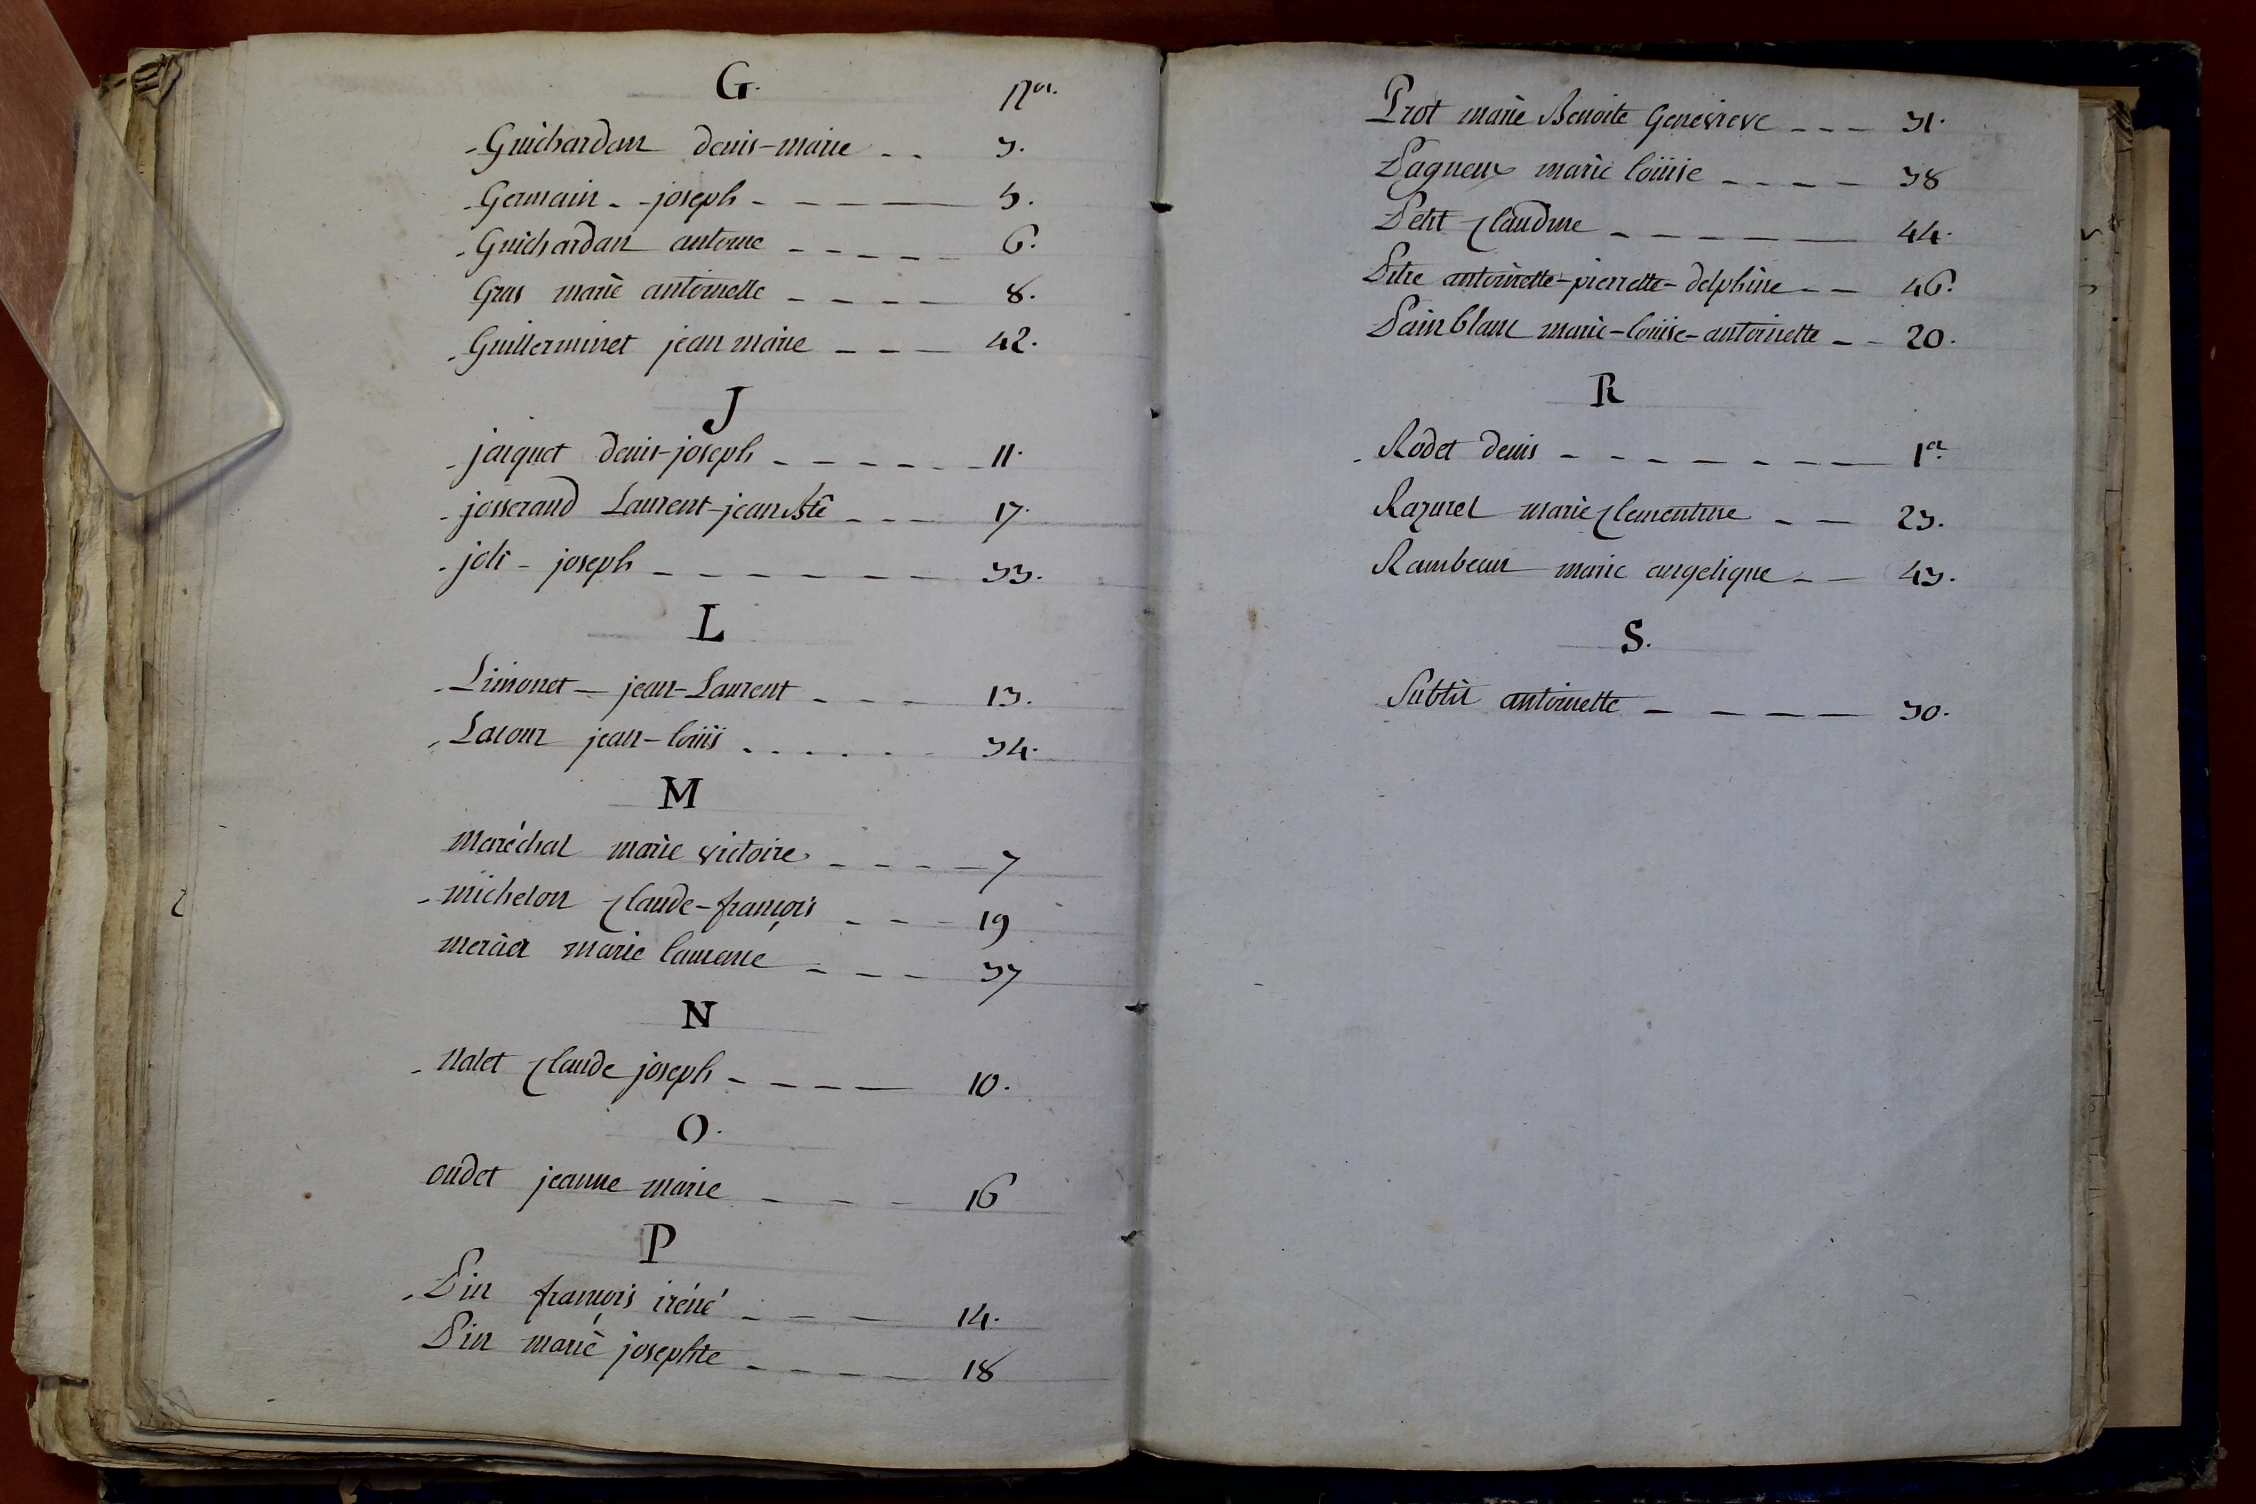 G. Nos.
Guichardan denis-marie - - 3.
Germain - - joseph - - - - 5.
Guichardan antoine - - - - - 6.
Gras marie antoinette - - - - 8.
Guillerminet jean marie - - - 42.
J
jacquet denis-joseph - - - - - 11.
josserand Laurent-jean Bte - - - 17.
joli - joseph - - - - - - - 33.
L
Limonet - jean-Laurent - - - 13.
Lacour jean-louis - - - - - 34.
M
Maréchal marie victoire - - - - 7
michelon Claude-françois - - - 19
mercier marie - - - 37
N
Nalet Claude joseph - - - - - 10.
O.
oudet jeanne marie - - - - 16
P
Pin françois iréné - - - 14.
Pin marie josephte - - - - - 18
Prot marie Benoite Genevieve - - - 31.
Pagneux marie louise - - - - 38
Petit Claudine - - - - - - 44.
Pitre antoinette-pierrette-delphine - - 46.
Painblanc marie-louise-antoinette - - 20.
R
Rodet denis - - - - - - - - 1er
Razurel marie Clementine - - 23.
Rambeau marie angelique - - 43.
S.
Subtil antoinette - - - - - 30.